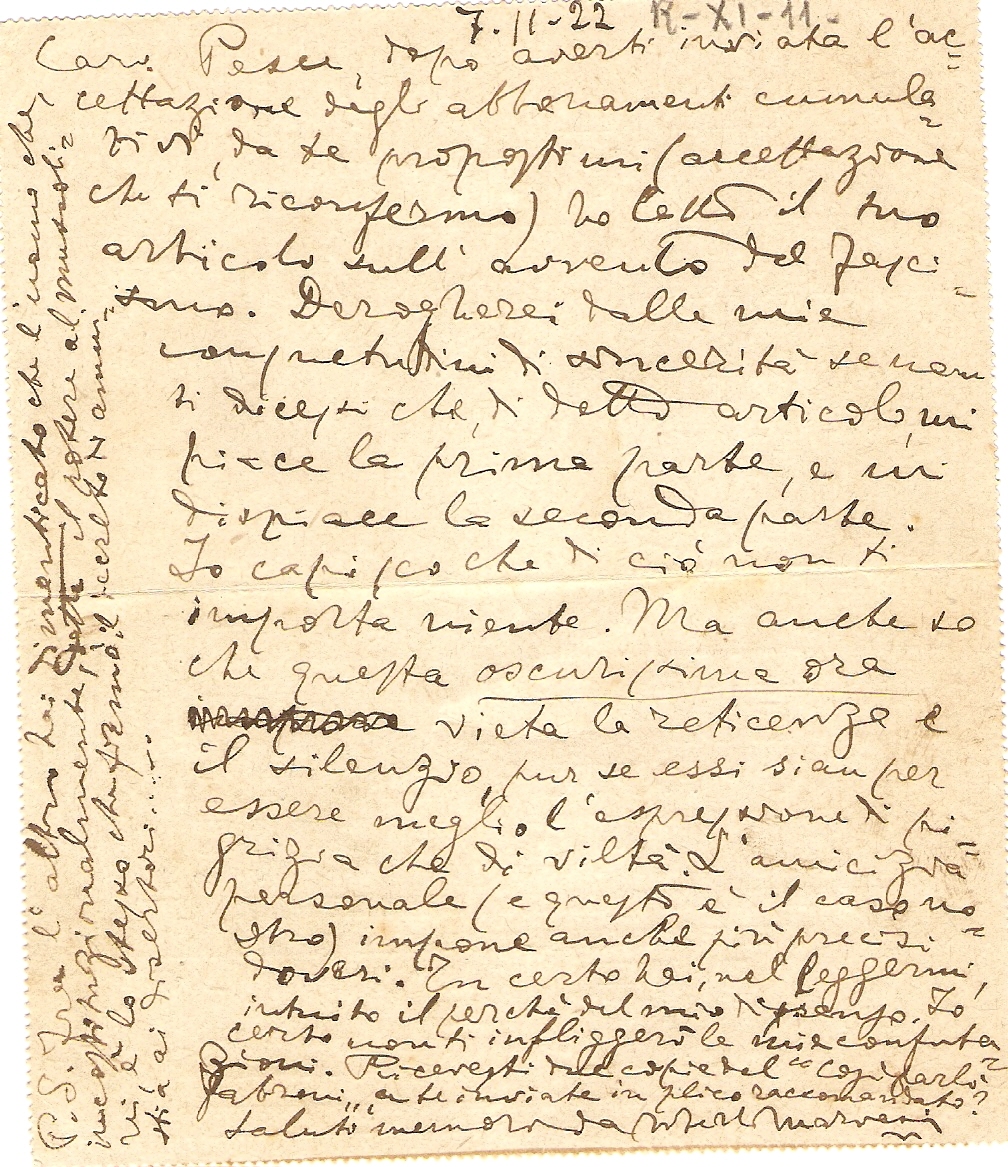 7.11-22 R-XI-11-
Caro Pesce, dopo averti inviata l'ac=
cettazione degli abbonamenti cumula=
tivi, da te propostimi (accettazione
che ti riconfermo) ho letto il tuo
articolo sull'avvento del fasci=
smo. Derogherei dalle mie
consuetudini di sincerità se non
ti dicessi che, di detto articolo, mi
piace la prima parte, e mi
dispiace la seconda parte.
Io capisco che di ciò non ti
importa niente. Ma anche so
che questa oscurissima ora
vieta la reticenza e
il silenzio, pur se essi sian per
essere meglio l'espressione di pi=
grizia che di viltà. L'amicizia
personale (e questo è il caso no=
stro) impone anche più precisi
doveri. Tu certo hai, nel leggermi,
intuito il perchè del mio dissenso. Io
certo non ti infliggerò le mie confuta=
zioni. Ricevesti due copie del "Così parlò
Fabroni", a te inviate in plico raccomandato?
Saluti memori da
P.S. Fra l'altro hai dimenticato che l'uomo che,
incostituzionalmente, dette il potere al
è lo stesso che firmò il decreto di amni=
stia ai disertori.....